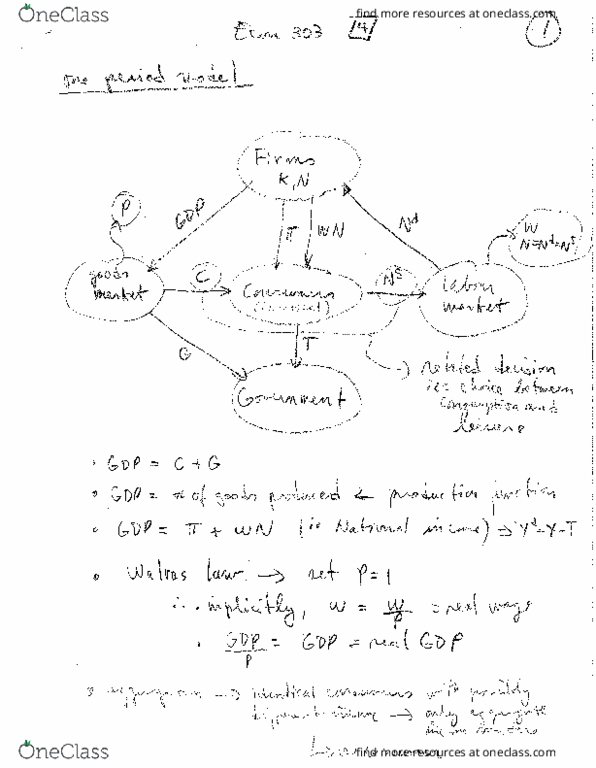 OneClass
find more resources at oneclass.com
Econ 303 4
1
one period model
Firms
K,N
P
GDP
π
WN
Nd
W
N=Nd=Ns
goods
market
C
Consumers
Ns
labour
market
G
T
Government
related decision
i.e. choice between
consumption and
leisure
• GDP = C + G
• GDP = # of goods produced ← production function
• GDP = π + WN (ie National income) → Yd=Y-T
• Walras law → set P=1
∴ implicitly, W = W/P = real wage
• GDP/P = GDP = real GDP
identical consumers with possibly
→ only aggregate
OneClass
find more resources at oneclass.com